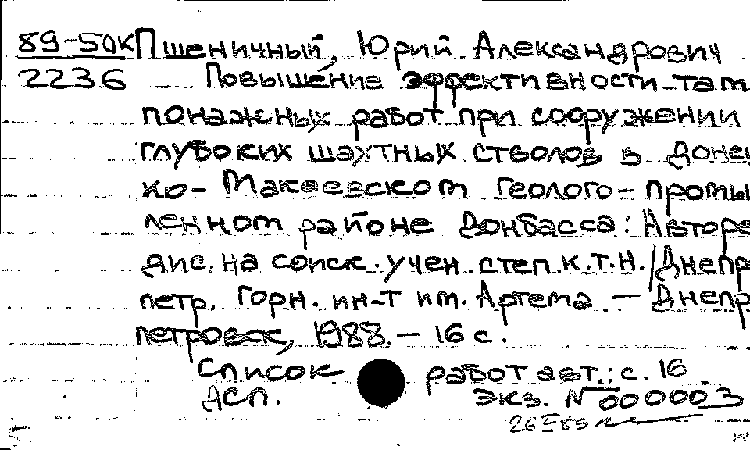 89-50К Пшеничный, Юрий Александрович
2236 Повышение эффективности там
понажных работ при сооружении
глубоких шахтных стволов в Донец
ко-Макеевском геолого-промыш
ленном районе Донбасса: Авторе
дис. на соиск. учен. степ. к.т.н. /Днепро
петр. горн. ин-т им. Артема. — Днепро
петровск, 1988. — 16 с.
Список работ авт.: с. 16
ДСП. Экз. № 000003